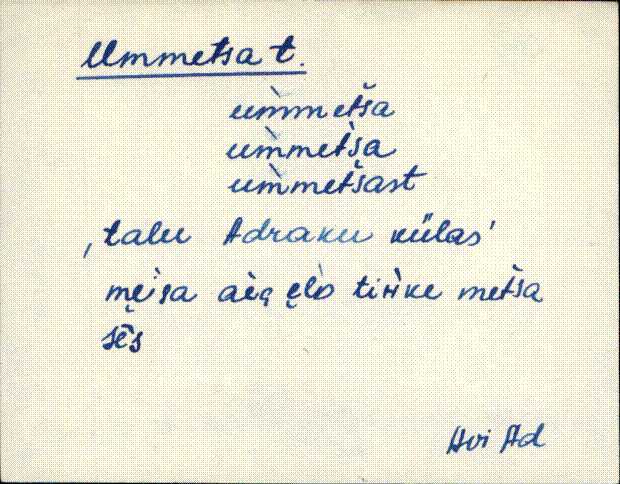 Ummetsa t.
um̀metša
um̀metša
um̀metšast
‚talu Adraku külas’
męìsa aèg ęlò tiǹke metša
sę̄s
Hvi Ad